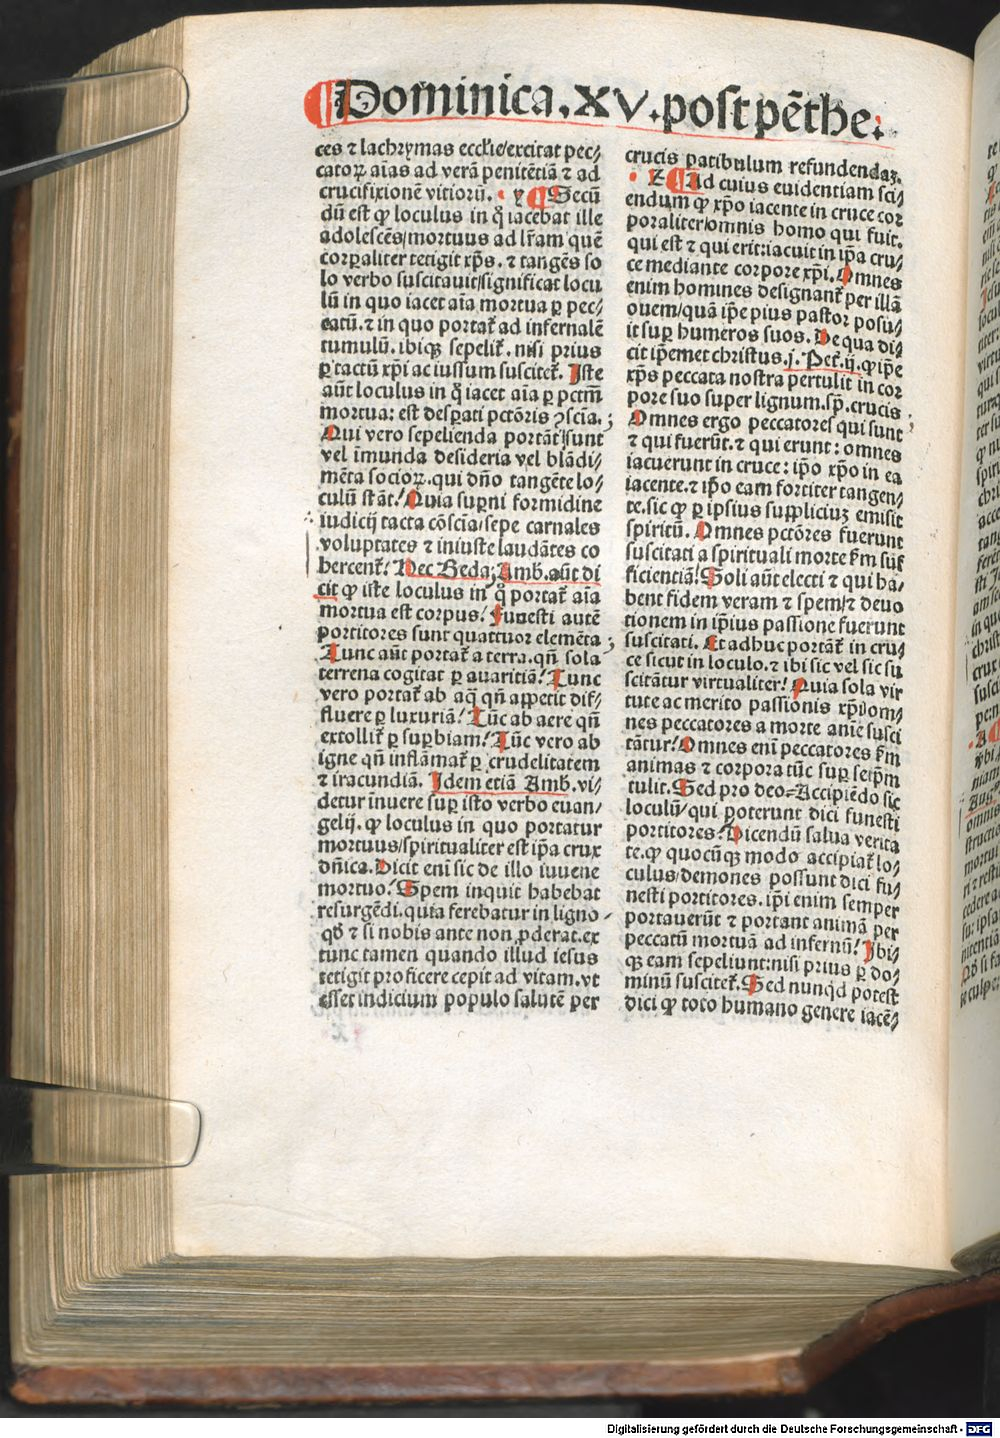 Dominica.XV.post pēthe:
ces ⁊ lachrymas eccłie/excitat pec⸗
catoꝝ aīas ad verā penitētiā ⁊ ad
crucifixionē vitiorū. · y ¶ Secū
dū est ꝙ loculus in q̊ iacebat ille
adolescēs/mortuus ad lr̄am quē
corꝑaliter tetigit xp̄s. ⁊ tangēs so
lo verbo suscitauit/significat locu
lū in quo iacet aīa mortua ꝑ pec⸗
catū. ⁊ in quo portat᷑ ad infernalē
tumulū. ibiqꝫ sepelit᷑. nisi prius
ꝑ tactū xp̄i ac iussum suscitet᷑. Iste
aūt loculus in q̊ iacet aīa ꝑ pctm̄
mortua: est desꝑati pctōris ꝯscīa.
Qui vero sepelienda portāt/sunt
vel īmunda desideria vel blādi⸗
mēta socioꝝ. qui dn̄o tangēte lo⸗
culū stāt! Quia suꝑni formidine
iudicij tacta cōscīa/sepe carnales
voluptates ⁊ iniuste laudātes co
hercent᷑! Hec Beda; Amb. aūt di
cit ꝙ iste loculus in q̊ portat᷑ aīa
mortua est corpus! Funesti autē
portitores sunt quattuor elemēta;
Nunc aūt portat᷑ a terra. qn̄ sola
terrena cogitat ꝑ auaritiā! Nunc
vero portat᷑ ab aq̄ qn̄ appetit dif⸗
fluere ꝑ luxuriā! Nūc ab aere qn̄
extollit᷑ ꝑ suꝑbiam! Nūc vero ab
igne qn̄ inflāmat᷑ ꝑ crudelitatem
⁊ iracundiā. Idem etiā Amb. vi⸗
detur īnuere suꝑ isto verbo euan⸗
gelij. ꝙ loculus in quo portatur
mortuus/spiritualiter est ip̄a crux
dn̄ica. Dicit eni sic de illo iuuene
mortuo! Spem inquit habebat
resurgēdi. quia ferebatur in ligno
qd̄ ⁊ si nobis ante non ꝓderat. ex
tunc tamen quando illud iesus
tetigit proficere cepit ad vitam. vt
esset indicium populo salutē per
crucis patibulum refundendaꝫ.
· Z ¶ Ad cuius euidentiam sci⸗
endum ꝙ xp̄o iacente in cruce cor
poraliter/omnis homo qui fuit.
qui est ⁊ qui erit: iacuit in ip̄a cru⸗
ce mediante corpore xp̄i. Omnes
enim homines designant᷑ per illā
ouem/quā ip̄e pius pastor posu⸗
it suꝑ humeros suos. De qua di⸗
cit ip̄emet christus. j. Pet᷑. ij. ꝙ ip̄e
xp̄s peccata nostra pertulit in cor
pore suo super lignum. sp̄. crucis
Omnes ergo peccatores qui sunt
⁊ qui fuerūt. ⁊ qui erunt: omnes
iacuerunt in cruce: ip̄o xp̄o in ea
iacente. ⁊ ip̄o eam fortiter tangen⸗
te. sic ꝙ ꝑ ipsius suppliciuꝫ emisit
spiritū. Omnes pctōres fuerunt
suscitati a spirituali morte fm̄ suf⸗
ficientiā! Soli aūt electi ⁊ qui ha⸗
bent fidem veram ⁊ spem/⁊ deuo
tionem in ip̄ius passione fuerunt
suscitati. Et adhuc portāt᷑ in cru⸗
ce sicut in loculo. ⁊ ibi sic vel sic su
scitātur virtualiter! Quia sola vir
tute ac merito passionis xp̄i/om⸗
nes peccatores a morte anīe susci
tātur! Omnes enī peccatores fm̄
animas ⁊ corpora tūc suꝑ seip̄m
tulit. Sed pro deo= Accipiēdo sic
loculū/ qui poterunt dici funesti
portitores! Dicendū salua verita
te. ꝙ quocūqꝫ modo accipiat᷑ lo⸗
culus/demones possunt dici fu⸗
nesti portitores. ip̄i enim semper
portauerūt ⁊ portant animā per
peccatū mortuā ad infernū! Ibi⸗
qꝫ eam sepeliunt: nisi prius ꝑ do⸗
minū suscitet᷑. Sed nunqd potest
dici ꝙ toto humano genere iacē⸗
Digitalisierung gefördert durch die Deutsche Forschungsgemeinschaft - DFG